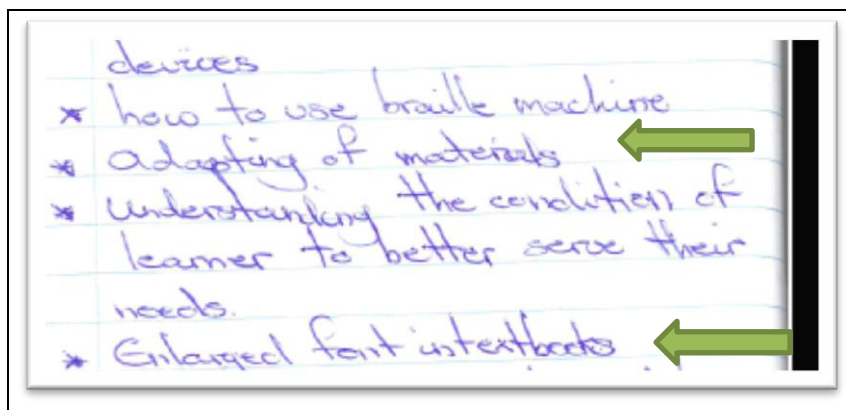 devices
* how to use braille machine
* adapting of materials
* understanding the condition of
learner to better serve their
needs.
* Enlarged font in textbooks